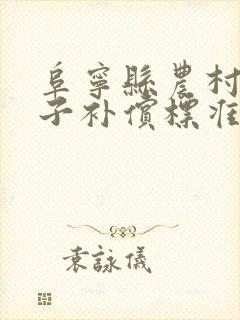 阜寧縣農村
子补償標准
袁詠儀